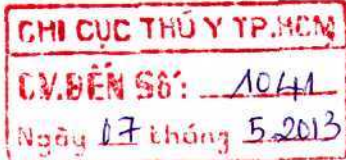 CHI CỤC THÚ Y TP.HCM
C.V.ĐẾN Số: 1041
Ngày 07 tháng 5.2013